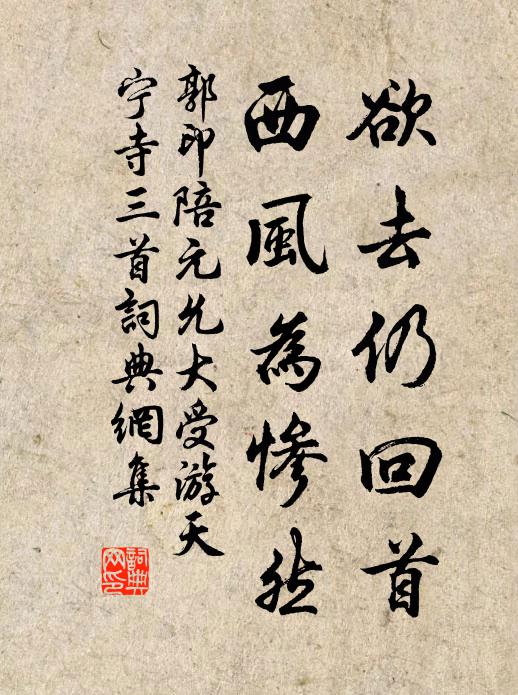 欲去仍回首
西風為慘然
郭印陪元允大受游天
宁寺三首詞典網集
詞典网印